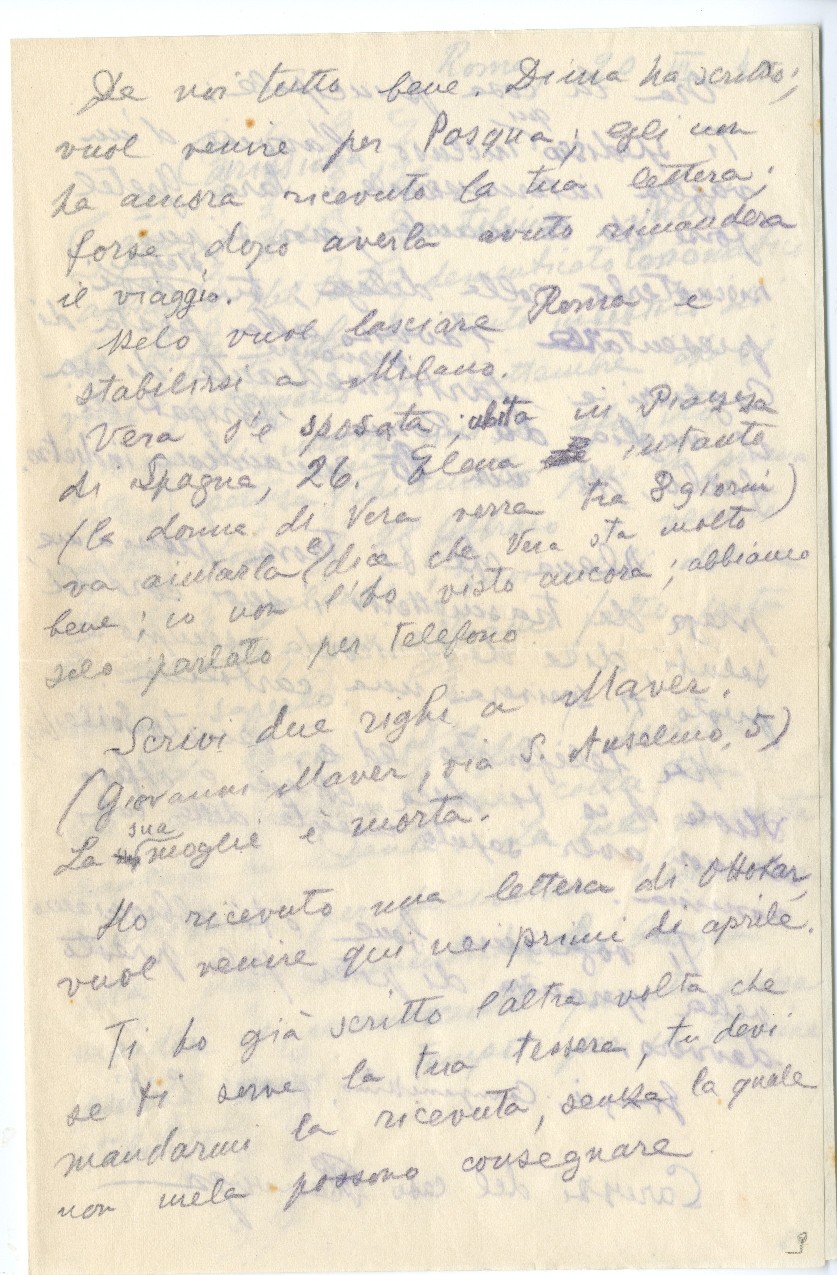 Da noi tutto bene. Dima ha scritto;
vuol venire per Pasqua; egli non
ha ancora ricevuto la tua lettera;
forse dopo averla avuto rimanderà
il viaggio.
vuol lasciare Roma e
stabilirsi a Milano.
Vera s'è sposata, abita in Piazza
di Spagna, 26. Elena intanto
(la donna di Vera verrà tra 8 giorni)
va aiutarla e dice che Vera sta molto
bene; io non l'ho visto ancora; abbiamo
solo parlato per telefono.
Scrivi due righe a Maver.
(Giovanni Maver, via S. Anselmo, 5)
La sua moglie è morta.
Ho ricevuto una lettera di Ottokar,
vuol venire qui nei primi di aprile.
Ti ho già scritto l'altra volta che
se ti serve la tua tessera, tu devi
mandarmi la ricevuta, senza la quale
non mela possono consegnare
9